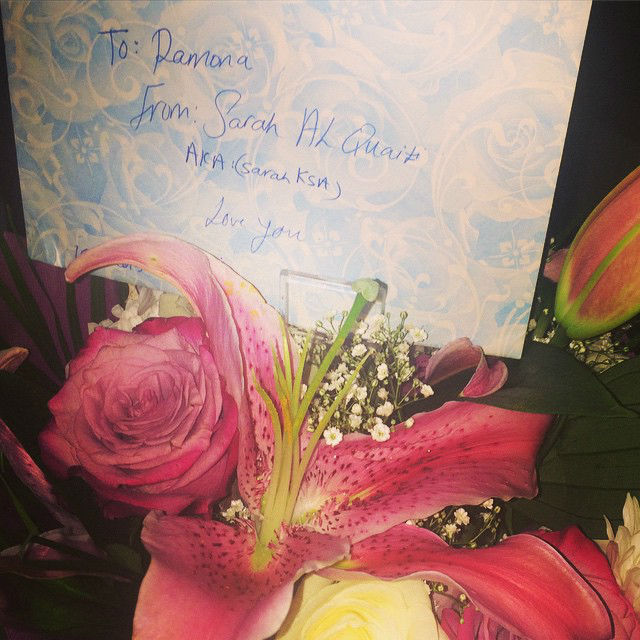 To: Ramona
From: Sarah AL Quaiti
AKA: (Sarah KSA)
Love you